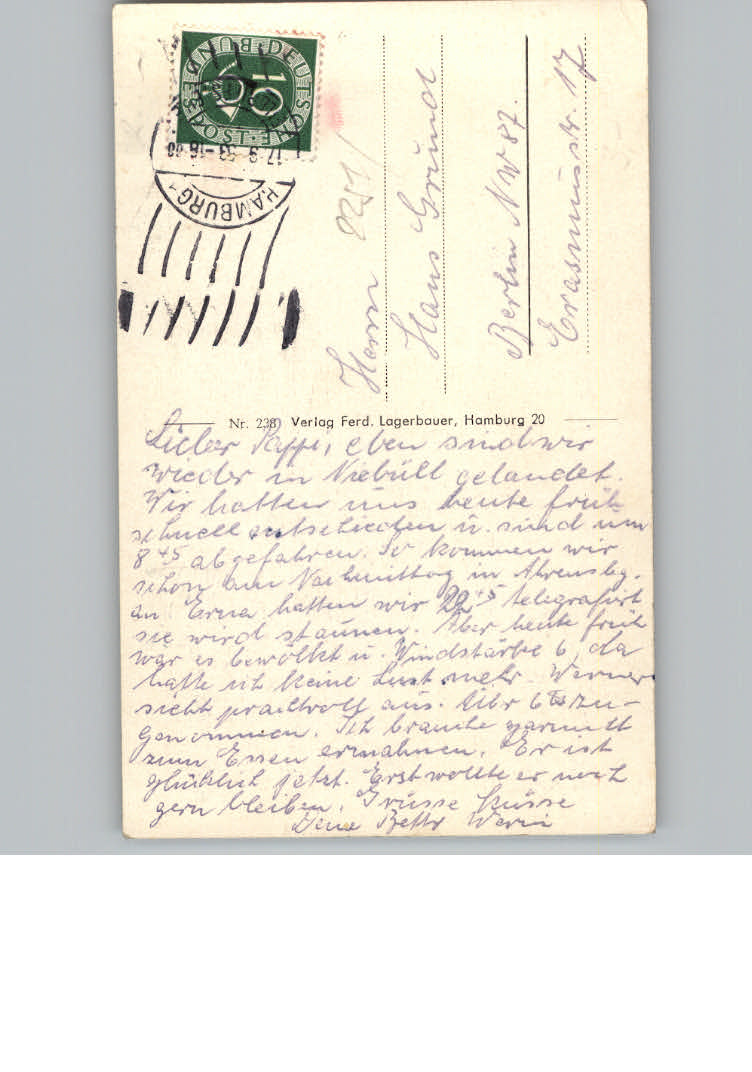 DEUTSCHE BUNDESPOST
10
17.9.53-16
HAMBURG 1
Herrn
Hans Grundt
Berlin NW 87.
Erasmusstr. 17
Nr. 238 Verlag Ferd. Lagerbauer, Hamburg 20
Lieber Pappi, eben sind wir
wieder in Niebüll gelandet.
Wir hatten uns heute früh
schnell entschieden u. sind um
8 45 abgefahren. So kommen wir
schon am Nachmittag in Ahrensbg.
an Erna hatten wir 22 45 telegrafirt
sie wird staunen. Aber heute früh
war es bewölkt u. Windstärke 6, da
hatte ich keine Lust mehr. Werner
sieht prachtvoll aus. 6 zu-
genommen. Ich brauche garnicht
zum Essen ermahnen. Er ist
glücklich jetzt. Erst wollte er noch
gern bleiben. Grüsse Küsse
Deine